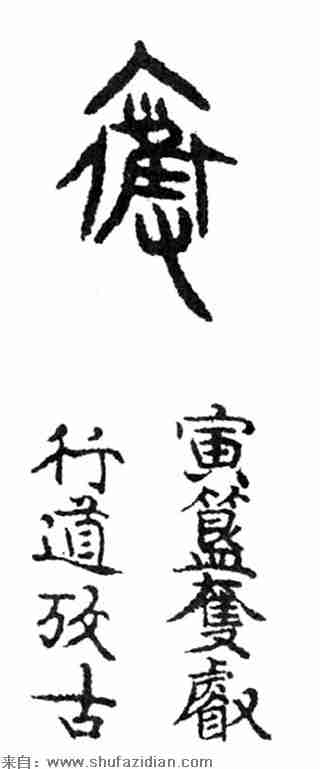 奪
寅簋奪叡
行道攷古
来自：www.shufazidian.com